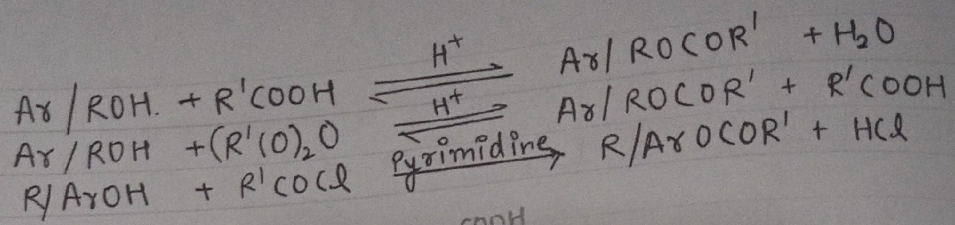 Ar/ROH. + R'COOH ⇌ H⁺ Ar/ROCOR' + H₂O
Ar/ROH + (R'CO)₂O ⇌ H⁺ Ar/ROCOR' + R'COOH
R/ArOH + R'COCl Pyrimidine → R/ArOCOR' + HCl
COOH